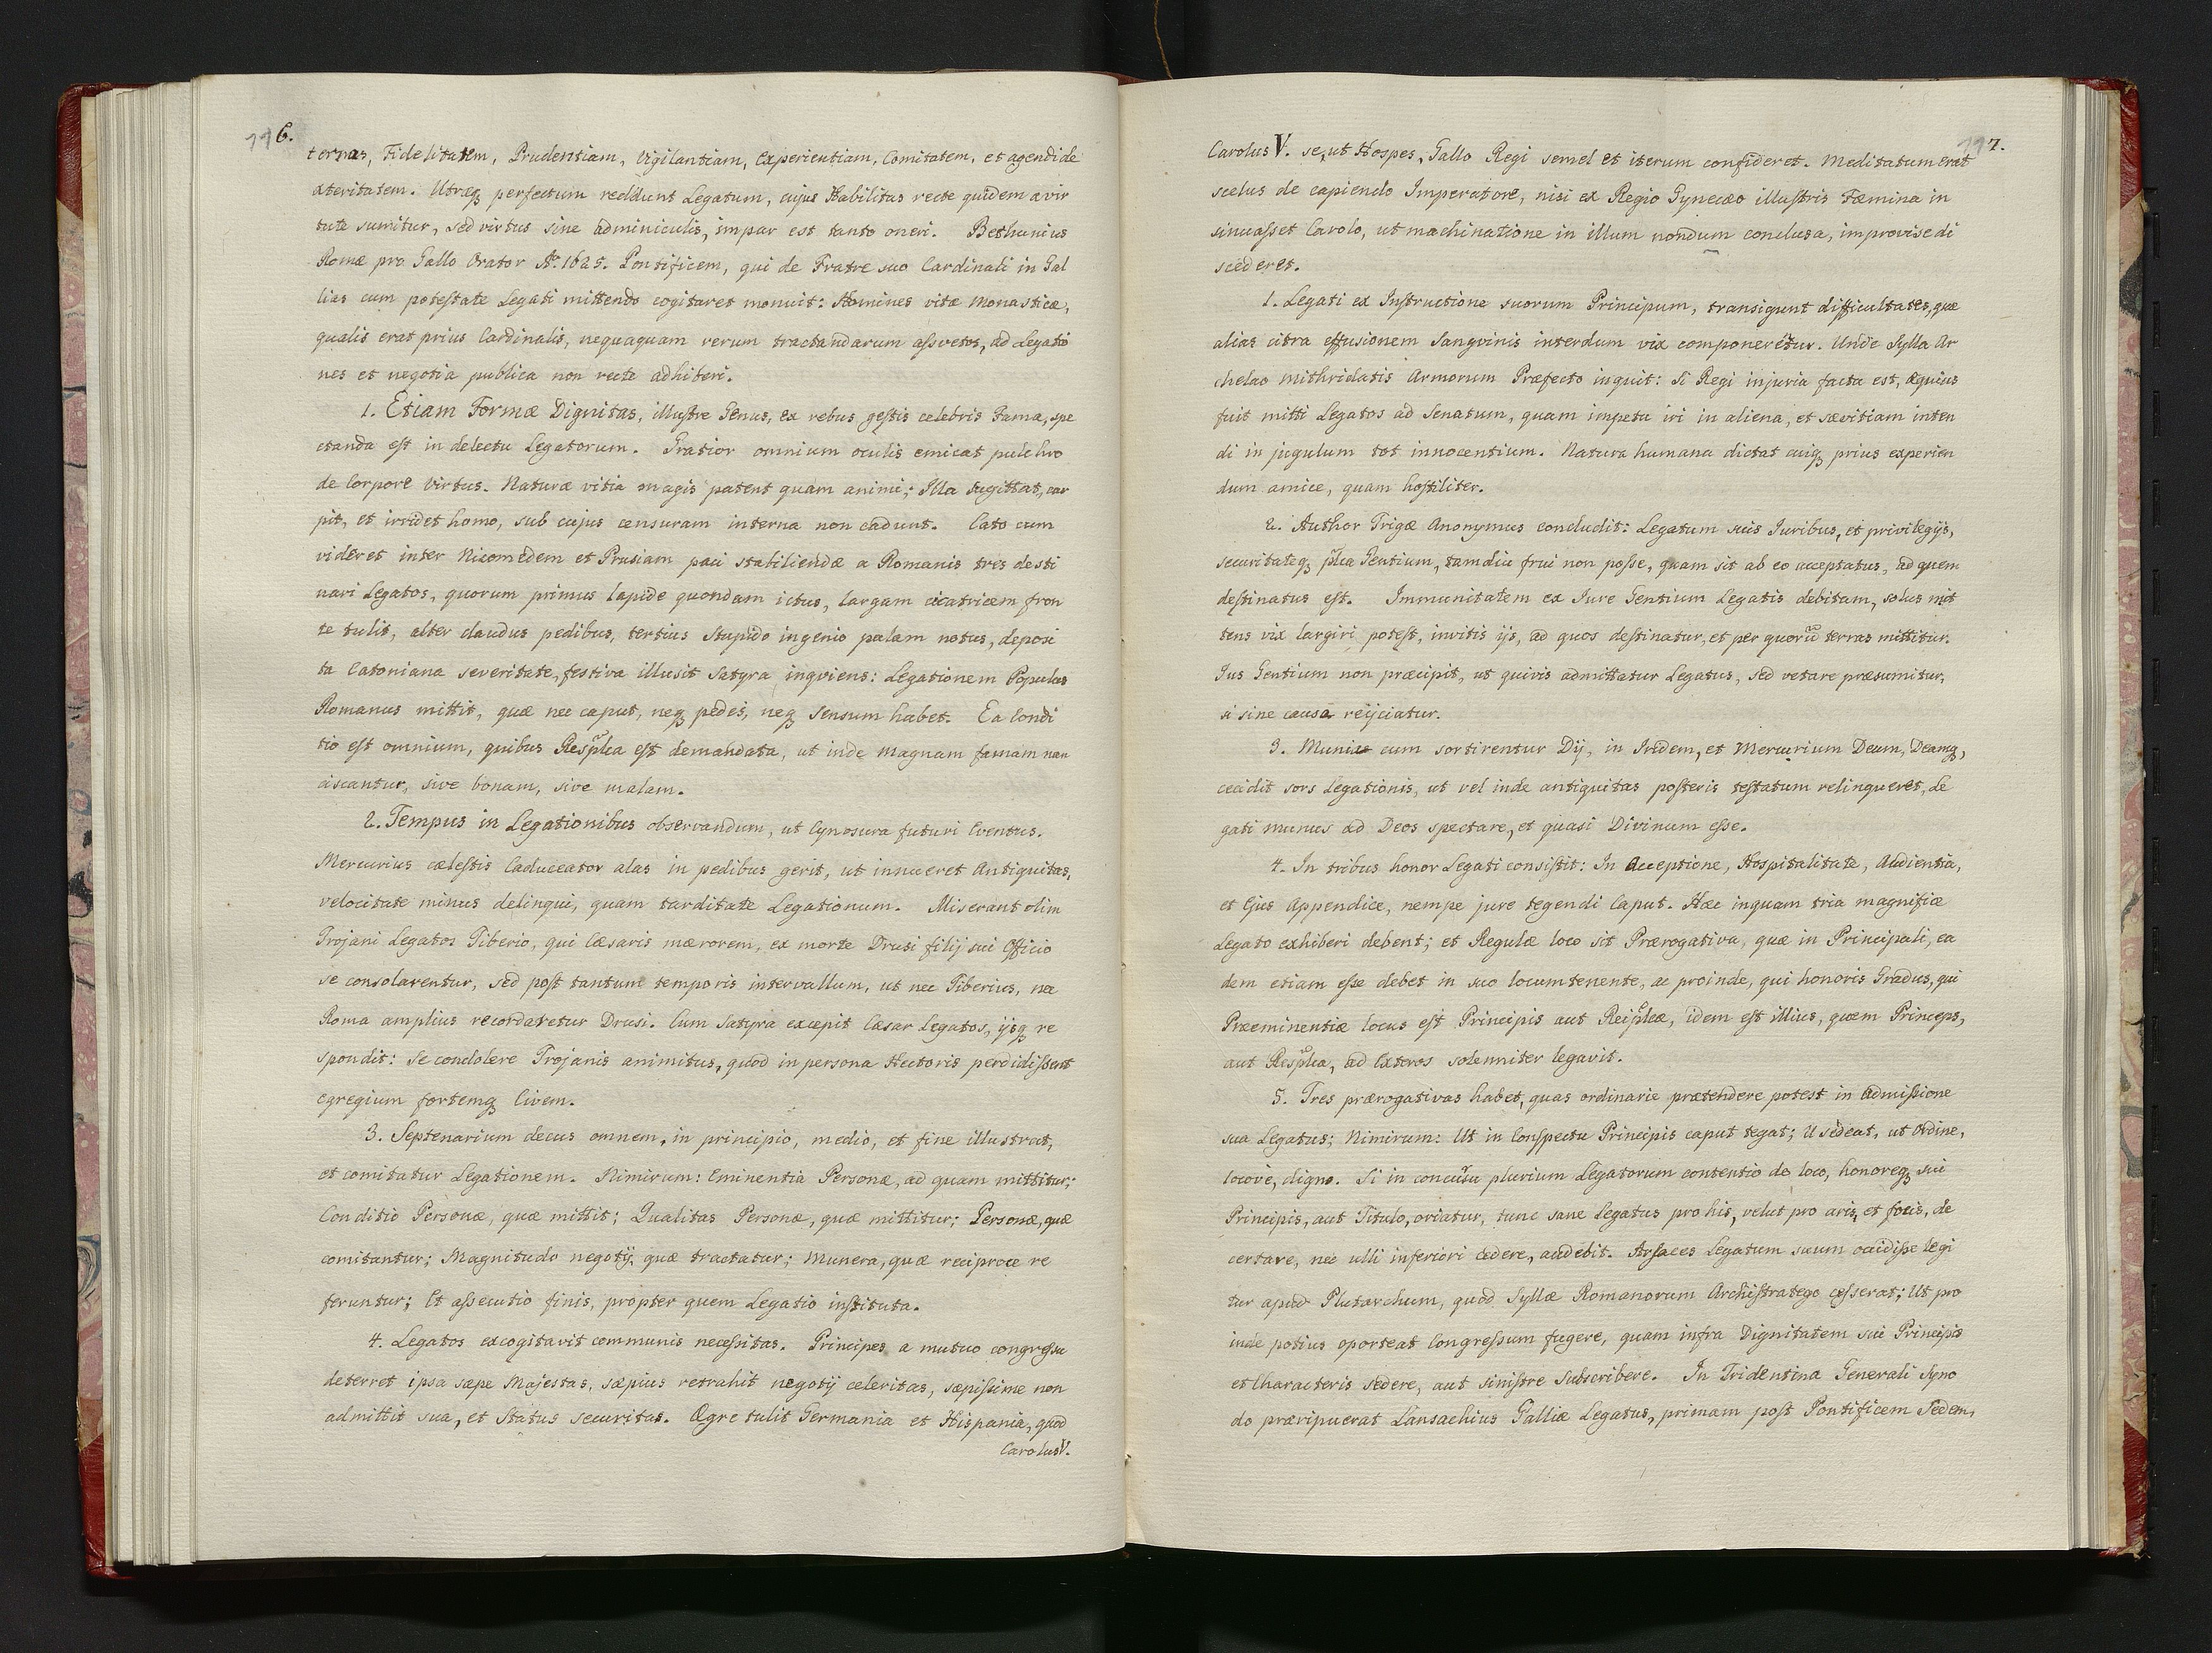 116.
ternas, Fidelitatem, Prudentiam, Vigilantiam, Experientiam, Comitatem, et agendi de
xteritatem. Utræq perfectum reddunt Legatum, cujus Habilitas recte quidem a vir
tute sumitur, sed virtus sine adminiculis, impar est tanto oneri. Bethunius
Romæ pro Gallo Orator Ao. 1625. Pontificem, qui de Fratre suo Cardinali in Gal
lias cum potestate Legati mittendo cogitaret monuit: Homines vitæ Monasticæ,
qualis erat prius Cardinalis, nequaquam rerum tractandarum assvetos, ad Legatio
nes et negotia publica non recte adhiberi.
1. Etiam Formæ Dignitas, illustre Genus, ex rebus gestis celebris Fama, spe
ctanda est in delectu Legatorum. Gratior omnium oculis emicat pulchro
de Corpore Virtus. Naturæ vitia magis patent quam animi; Illa sugittat, car
pit, et irridet homo, sub cujus censuram interna non cadunt. Cato cum
videret inter Nicomedem et Prusiam paci stabiliendæ a Romanis tres desti
nari Legatos, quorum primus lapide quondam ictus, largam cicatricem fron
te tulit, alter claudus pedibus, tertius stupido ingenio palam notus, deposi
ta Catoniana severitate, festiva illusit Satyra inqviens: Legationem Populus
Romanus mittit, quæ nec caput, neq pedes, neq sensum habet. Ea Condi
tio est omnium, quibus Resplca est demandata, ut inde magnam famam nan
ciscantur, sive bonam, sive malam.
2. Tempus in Legationibus observandum, ut Cynosura futuri Eventus.
Mercurius cælestis Caduceator alas in pedibus gerit, ut innueret Antiquitas,
velocitate minus delinqui, quam tarditate Legationum. Miserant olim
Trojani Legatos Tiberio, qui Cæsaris mærorem, ex morte Drusi filij sui Officio
se consolarentur, sed post tantum temporis intervallum, ut nec Tiberius, nec
Roma amplius recordaretur Drusi. Cum Satyra excepit Cæsar Legatos, ijsq re
spondit: Se condolere Trojanis animitus, quod in persona Hectoris perdidissent
egregium fortemq Civem.
3. Septenarium decus omnem, in principio, medio, et fine illustrat,
et comitatur Legationem. Nimirum: Eminentia Personæ, ad quam mittitur;
Conditio Personæ, quæ mittit; Qualitas Personæ, quæ mittitur; Personæ, quæ
comitantur; Magnitudo negotij, quæ tractatur; Munera, quæ reciproce re
feruntur; Et assecutio finis, propter quem Legatio instituta.
4. Legatos excogitavit communis necessitas. Principes a mutuo congressu
deterret ipsa sæpe Majestas, sæpius retrahit negotij celeritas, sæpissime non
admittit sua, et Status securitas. Ægre tulit Germania et Hispania, quod
Carolus V.
117.
Carolus V. se, ut Hospes, Gallo Regi semel et iterum confideret. Meditatum erat
scelus de capiendo Imperatore, nisi ex Regio Gynecæo illustris Fæmina in
sinuasset Carolo, ut machinatione in illum nondum conclusa, improvise di
scederet.
1. Legati ex Instructione suorum Principum, transigunt difficultates, quæ
alias citra effusionem Sangvinis interdum vix componeretur. Unde Sylla Ar
chelao Mithridatis Armorum Præfecto inquit: Si Regi injuria facta est, æquius
fuit mitti Legatos ad Senatum, quam impetu iri in aliena, et sævitiam inten
di in jugulum tot innocentium. Natura humana dictat cuiq prius experien
dum amice, quam hostiliter.
2. Author Trigæ Anonymus concludit: Legatum suis Iuribus, et privilegijs,
securitateq plca Gentium, tamdiu frui non posse, quam sit ab eo acceptatus, ad quem
destinatus est. Immunitatem ex Iure Gentium Legatis debitam, solus mit
tens vix largiri potest, invitis ijs, ad quos destinatur, et per quorū terras mittitur.
Ius Gentium non præcipit, ut quivis admittatur Legatus, sed vetare præsumitur,
si sine causa reijciatur.
3. Munia cum sortirentur Dij, in Iridem, et Mercurium Deum, Deamq,
cecidit sors Legationis, ut vel inde antiquitas posteris testatum relinqueret, Le
gati munus ad Deos spectare, et quasi Divinum esse.
4. In tribus honor Legati consistit: In Acceptione, Hospitalitate, Audientia,
et Ejus Appendice, nempe jure tegendi Caput. Hæc inquam tria magnifice
Legato exhiberi debent; et Regulæ loco sit Prærogativa, quæ in Principali, ea
dem etiam esse debet in suo locumtenente, ac proinde, qui honoris Gradus, qui
Præeminentiæ locus est Principis aut Reiplcæ, idem est illius, quem Princeps,
aut Resplca, ad Exteros solenniter legavit.
5. Tres prærogativas habet, quas ordinarie prætendere potest in Admissione
sua Legatus; Nimirum: Ut in Conspectu Principis caput tegat; U sedeat, ut Ordine,
locove, digno. Si in concursu plurium Legatorum contentio de loco, honoreq sui
Principis, aut Titulo, oriatur, tunc sane Legatus pro his, velut pro aris, et focis, de
certare, nec ulli inferiori cedere, audebit. Arsaces Legatum suum occidisse legi
tur apud Plutarchum, quod Syllæ Romanorum Archistratego cesserat; Ut pro
inde potius oporteat Congressum fugere, quam infra Dignitatem sui Principis
et Characteris sedere, aut sinistre subscribere. In Tridentina Generali Syno
do præripuerat Lansachius Galliæ Legatus, primam post Pontificem Sedem,